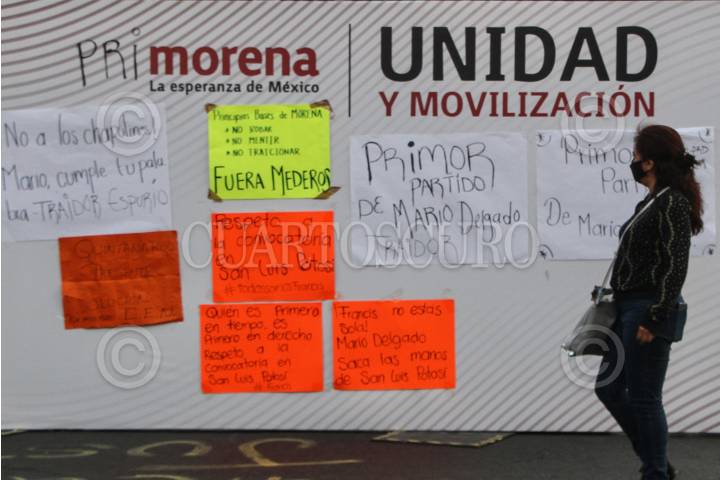 PRI morena
La esperanza de México
UNIDAD
Y MOVILIZACIÓN
No a los chapulines!
Mario, cumple tu pala
bra - TRAIDOR ESPURIO
Principios Bases de MORENA
* NO ROBAR
* NO MENTIR
* NO TRAICIONAR
FUERA MEDEROS
PRIMOR
PARTIDO
DE MARIO Delgado
TRAIDOR
Primor
Par
De Mario
Respeto a
la convocatoria
en
San Luis Potosí
Quintana Roo
Presente
C.E.N.
Quien es Primero
en tiempo, es
Primero en derecho
Respeto a la
Convocatoria en
San Luis Potosí
Francis no estás
Sola!
Mario Delgado
Saca las manos
de San Luis Potosí
CUARTOSCURO